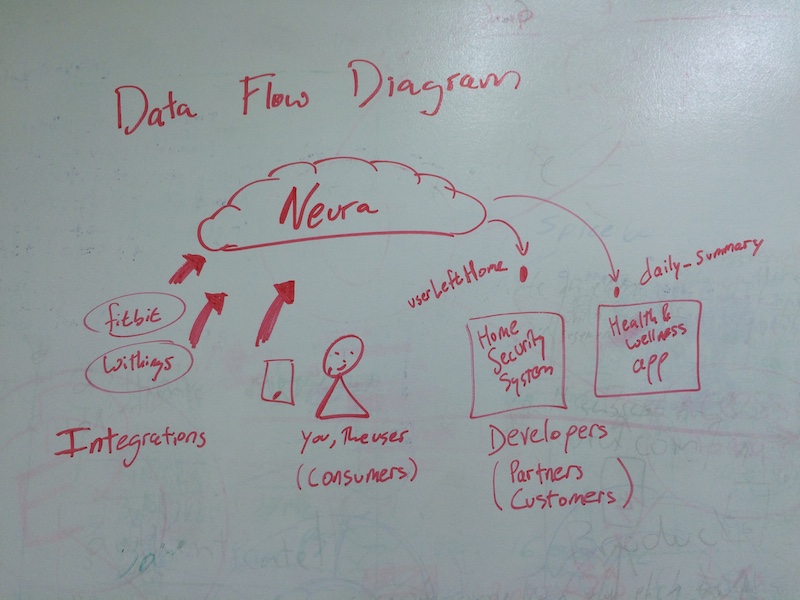 Data Flow Diagram
Neura
userLeftHome
daily_summary
fitbit
withings
Home
Security
System
Health &
wellness
app
Integrations
you, the user
(consumers)
Developers
(Partners
Customers)